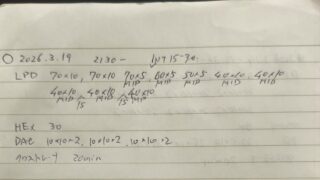 ○ 2026.3.19 2130-
LPD 70×10, 70×10 70×5, 60×5 50×5 40×10, 40×10
MID MID MID
40×10 40×10 40×10
MID 15 MID 15 MID
HEX 30
DAC 10×10×2, 10×10×2, 10×10×2
クロストレーナ 20min